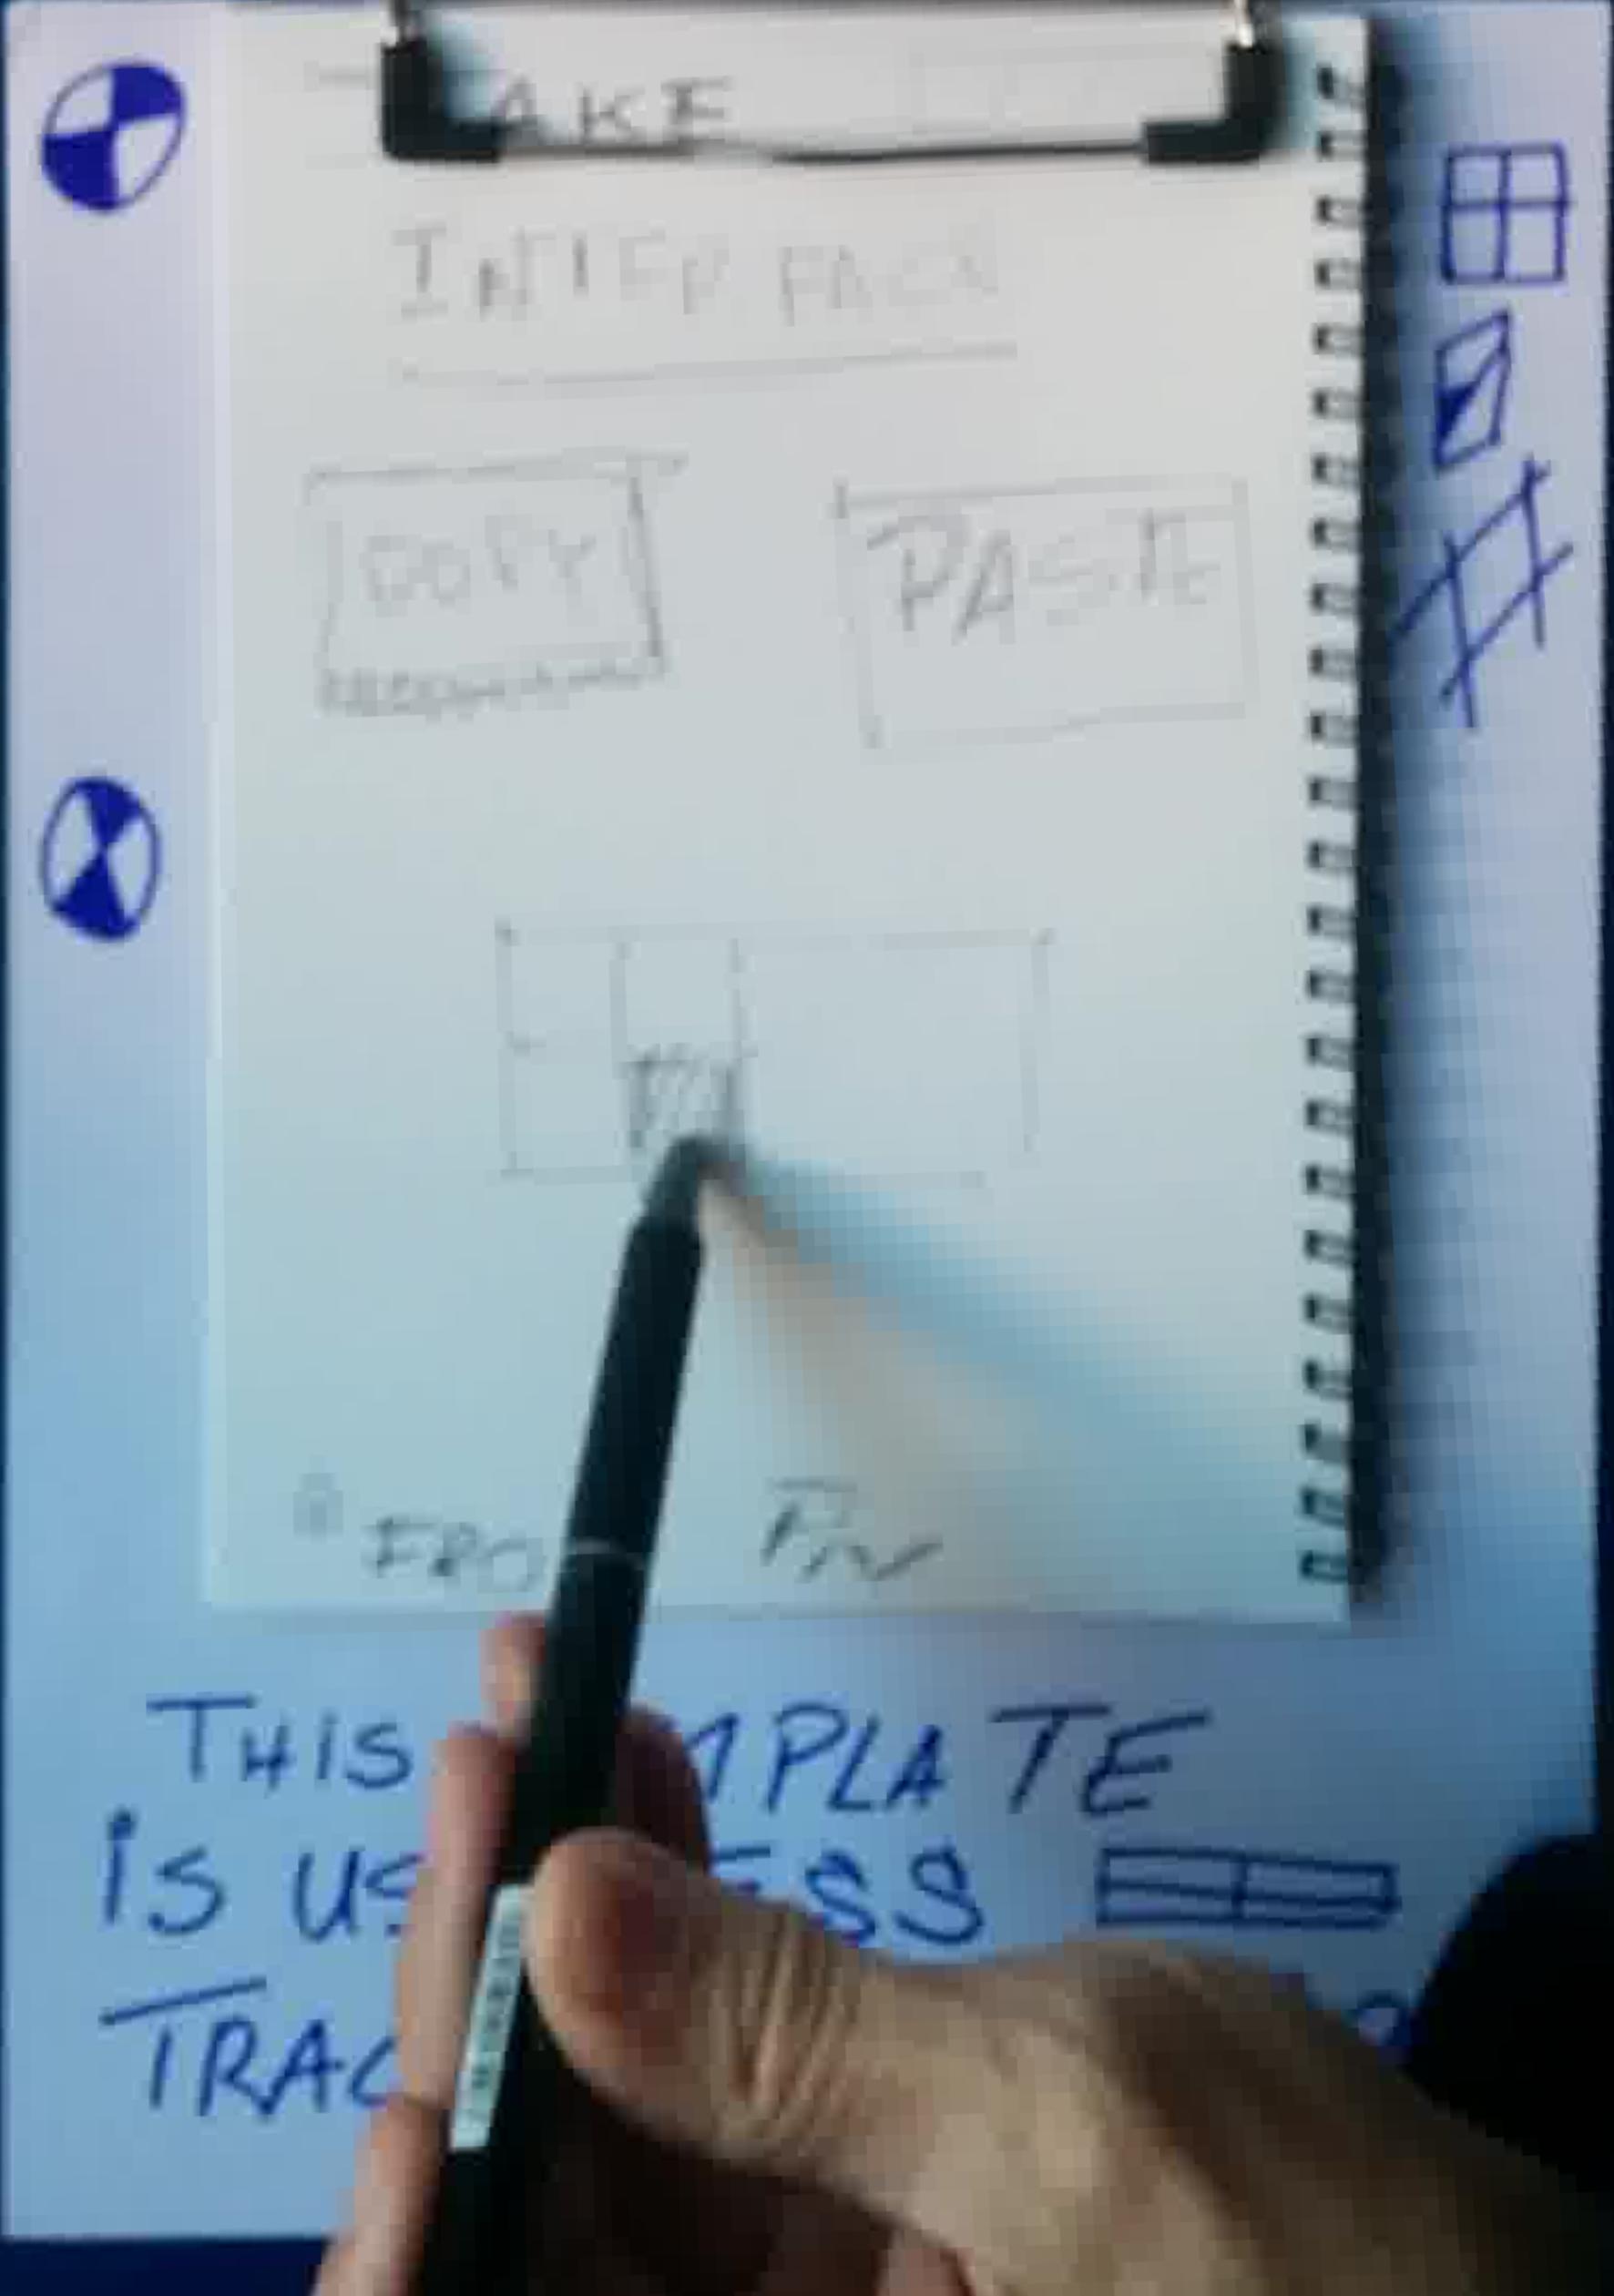 AKE
INTERFACE
COPY PASTE
THIS MPLATE
IS US ESS
TRAC